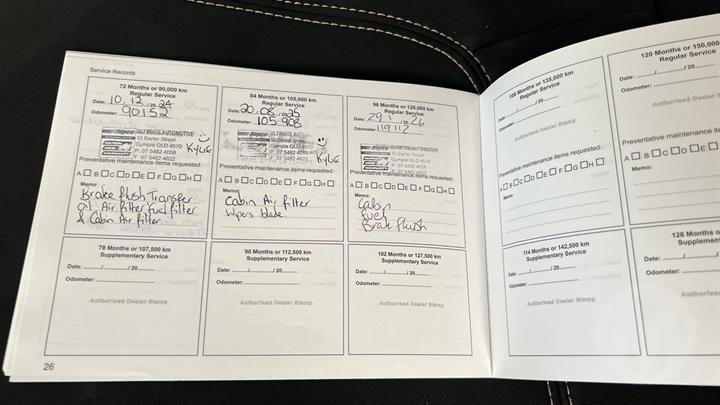 Service Records
72 Months or 90,000 km
Regular Service
Date: 10/12/2024
Odometer: 90152
Repco ULTIMATE AUTOMOTIVE
10 Barter Street
Gympie QLD 4570
P: 07 5482 4058
F: 07 5482 4822
KYLIE
Preventative maintenance items requested:
A B C D E F G H
Memo:
Brake flush Transfer
oil Air filter, fuel filter
& Cabin Air filter
84 Months or 105,000 km
Regular Service
Date: 20/08/2025
Odometer: 105908
Repco ULTIMATE AUTOMOTIVE
10 Barter Street
Gympie QLD 4570
P: 07 5482 4058
F: 07 5482 4822
KYLIE
Preventative maintenance items requested:
A B C D E F G H
Memo:
Cabin Air filter
Wipers blade
96 Months or 120,000 km
Regular Service
Date: 29/1/2026
Odometer: 119112
Repco ULTIMATE AUTOMOTIVE
10 Barter Street
Gympie QLD 4570
P: 07 5482 4058
F: 07 5482 4822
Preventative maintenance items requested:
A B C D E F G H
Memo:
Cabin
Fuel
Brake Flush
78 Months or 107,500 km
Supplementary Service
Date: ....../....../ 20......
Odometer:
Authorised Dealer Stamp
90 Months or 112,500 km
Supplementary Service
Date: ....../....../ 20......
Odometer:
Authorised Dealer Stamp
102 Months or 127,500 km
Supplementary Service
Date: ....../....../ 20......
Odometer:
Authorised Dealer Stamp
26
108 Months or 135,000 km
Regular Service
Date: ....../....../20......
Odometer:
Authorised Dealer Stamp
Preventative maintenance items requested:
A B C D E F G H
Memo:
120 Months or 150,000
Regular Service
Date: ....../....../20
Odometer:
Authorised Dealer
Preventative maintenance items
A B C D E
Memo:
114 Months or 142,500 km
Supplementary Service
Date: ....../....../20......
Odometer:
Authorised Dealer Stamp
126 Months or
Supplement
Date: ....../
Odometer:
Authorised